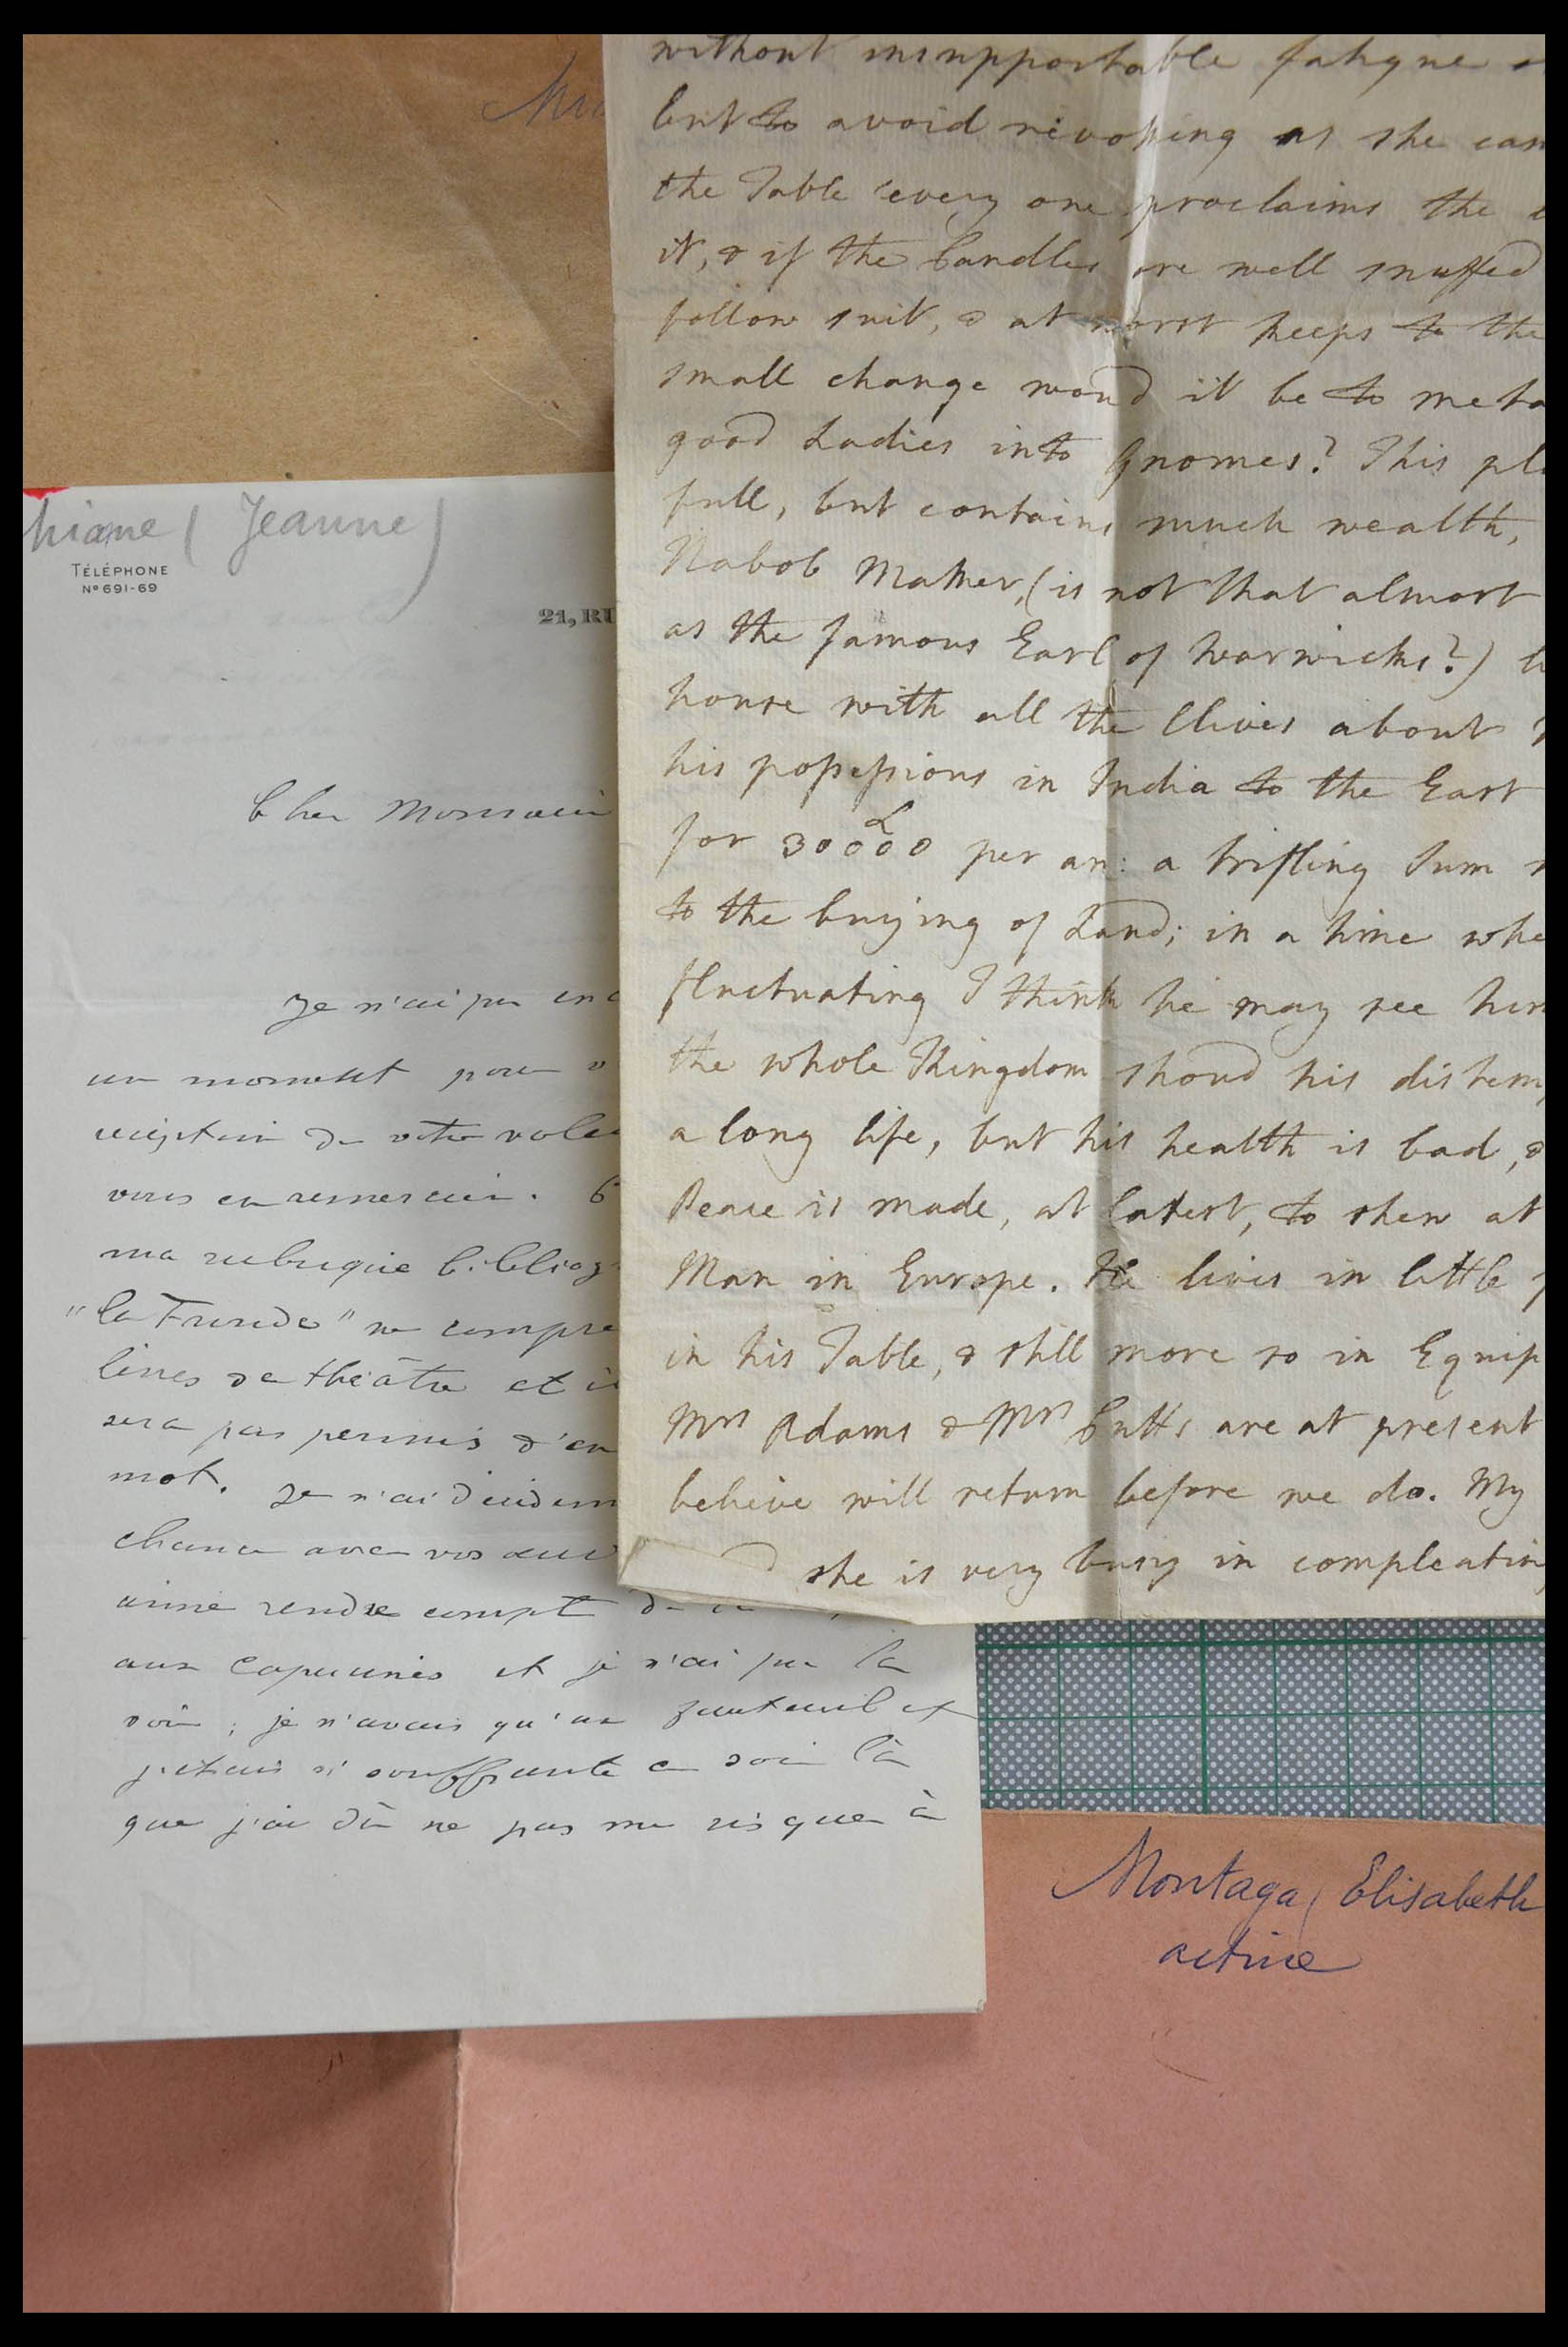 without insupportable fatigue
but to avoid revoking as she can
the Table every one proclaims the
it, & if the Candles are well snuffed
follow suit, & at worst keeps to the
small change woud it be to meta
good Ladies into Gnomes? This pla
full, but contains much wealth,
Nabob Maker, (is not that almost
as the famous Earl of Warwicks?)
house with all the Clives about
his possessions in India to the East
for 30000£ per an: a trifling Sum
to the buying of Land; in a time whe
fluctuating I think he may see him
the whole Kingdom shoud his distem
a long life, but his health is bad, &
Peace is made, at latest, to shew at
Man in Europe. He lives in little
in his Table, & still more so in Equip
Mrs Adams & Mrs Cutts are at present
believe will return before we do. My
she is very busy in compleatin
hiane (Jeanne)
TÉLÉPHONE
Nº 691-69
21, RU
Cher Monsieur
Je n'ai pu enc
un moment pour v
réception de votre volu
vous en remercier. C
ma rubrique bibliog
"la Fronde" ne compre
livres de théâtre et i
sera pas permis d'en
mot. Je n'ai décidem
chance avec vos
aimé rendre compte
aux Capucines et je n'ai pu la
voir ; je n'avais qu'un fauteuil et
j'étais si souffrante ce soir là
que j'ai dû ne pas me risquer à
Montagu, Elisabeth
actrice